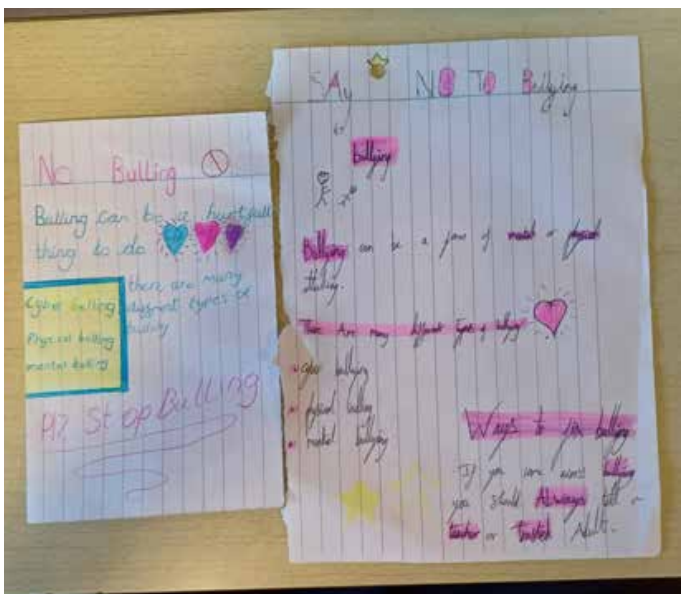 No Bulling
Bulling can be a hurtfull
thing to do
there are many
Cyber bulling
different types of
Physical bulling
mental bulling
Stop Bulling
SAy NO To Bullying
bullying
Bullying can be a form of mental or physical
There Are many different types of bullying
cyber bullying
physical bulling
mental bullying
Ways to bullying
If you come across bullying
you should Always tell a
teacher or Trusted Adult.